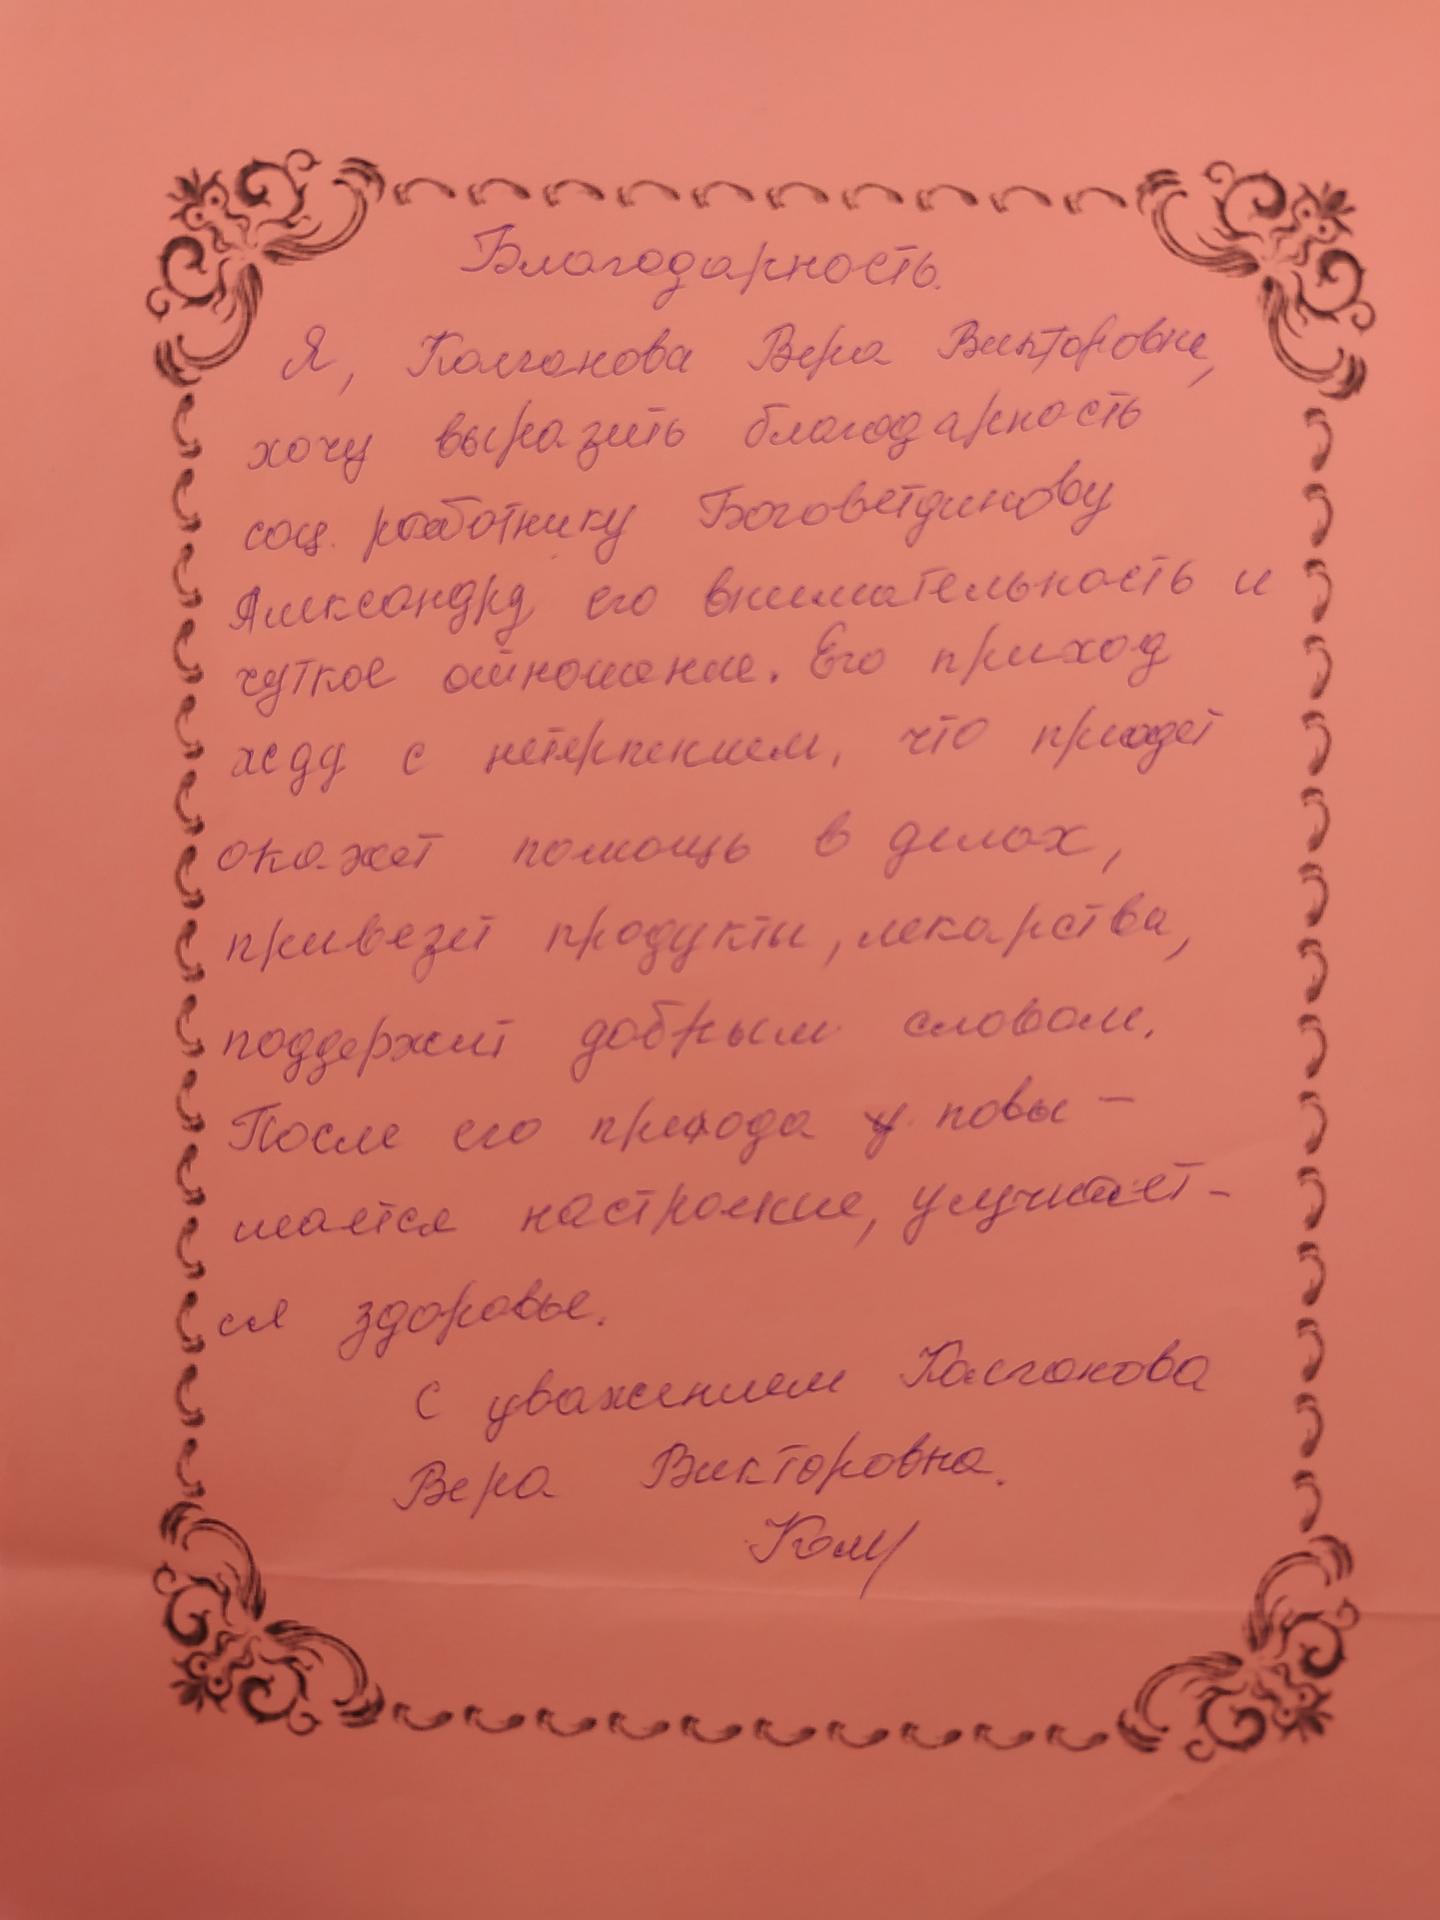 Благодарность.
Я, Колганова Вера Викторовна,
хочу выразить благодарность
соц. работнику Боговетдинову
Александру его внимательность и
чуткое отношение. Его приход
жду с нетерпением, что придет
окажет помощь в делах,
привезет продукты, лекарства,
поддержит добрым словом.
После его прихода у повы-
шается настроение, улучшает-
ся здоровье.
С уважением Колганова
Вера Викторовна.